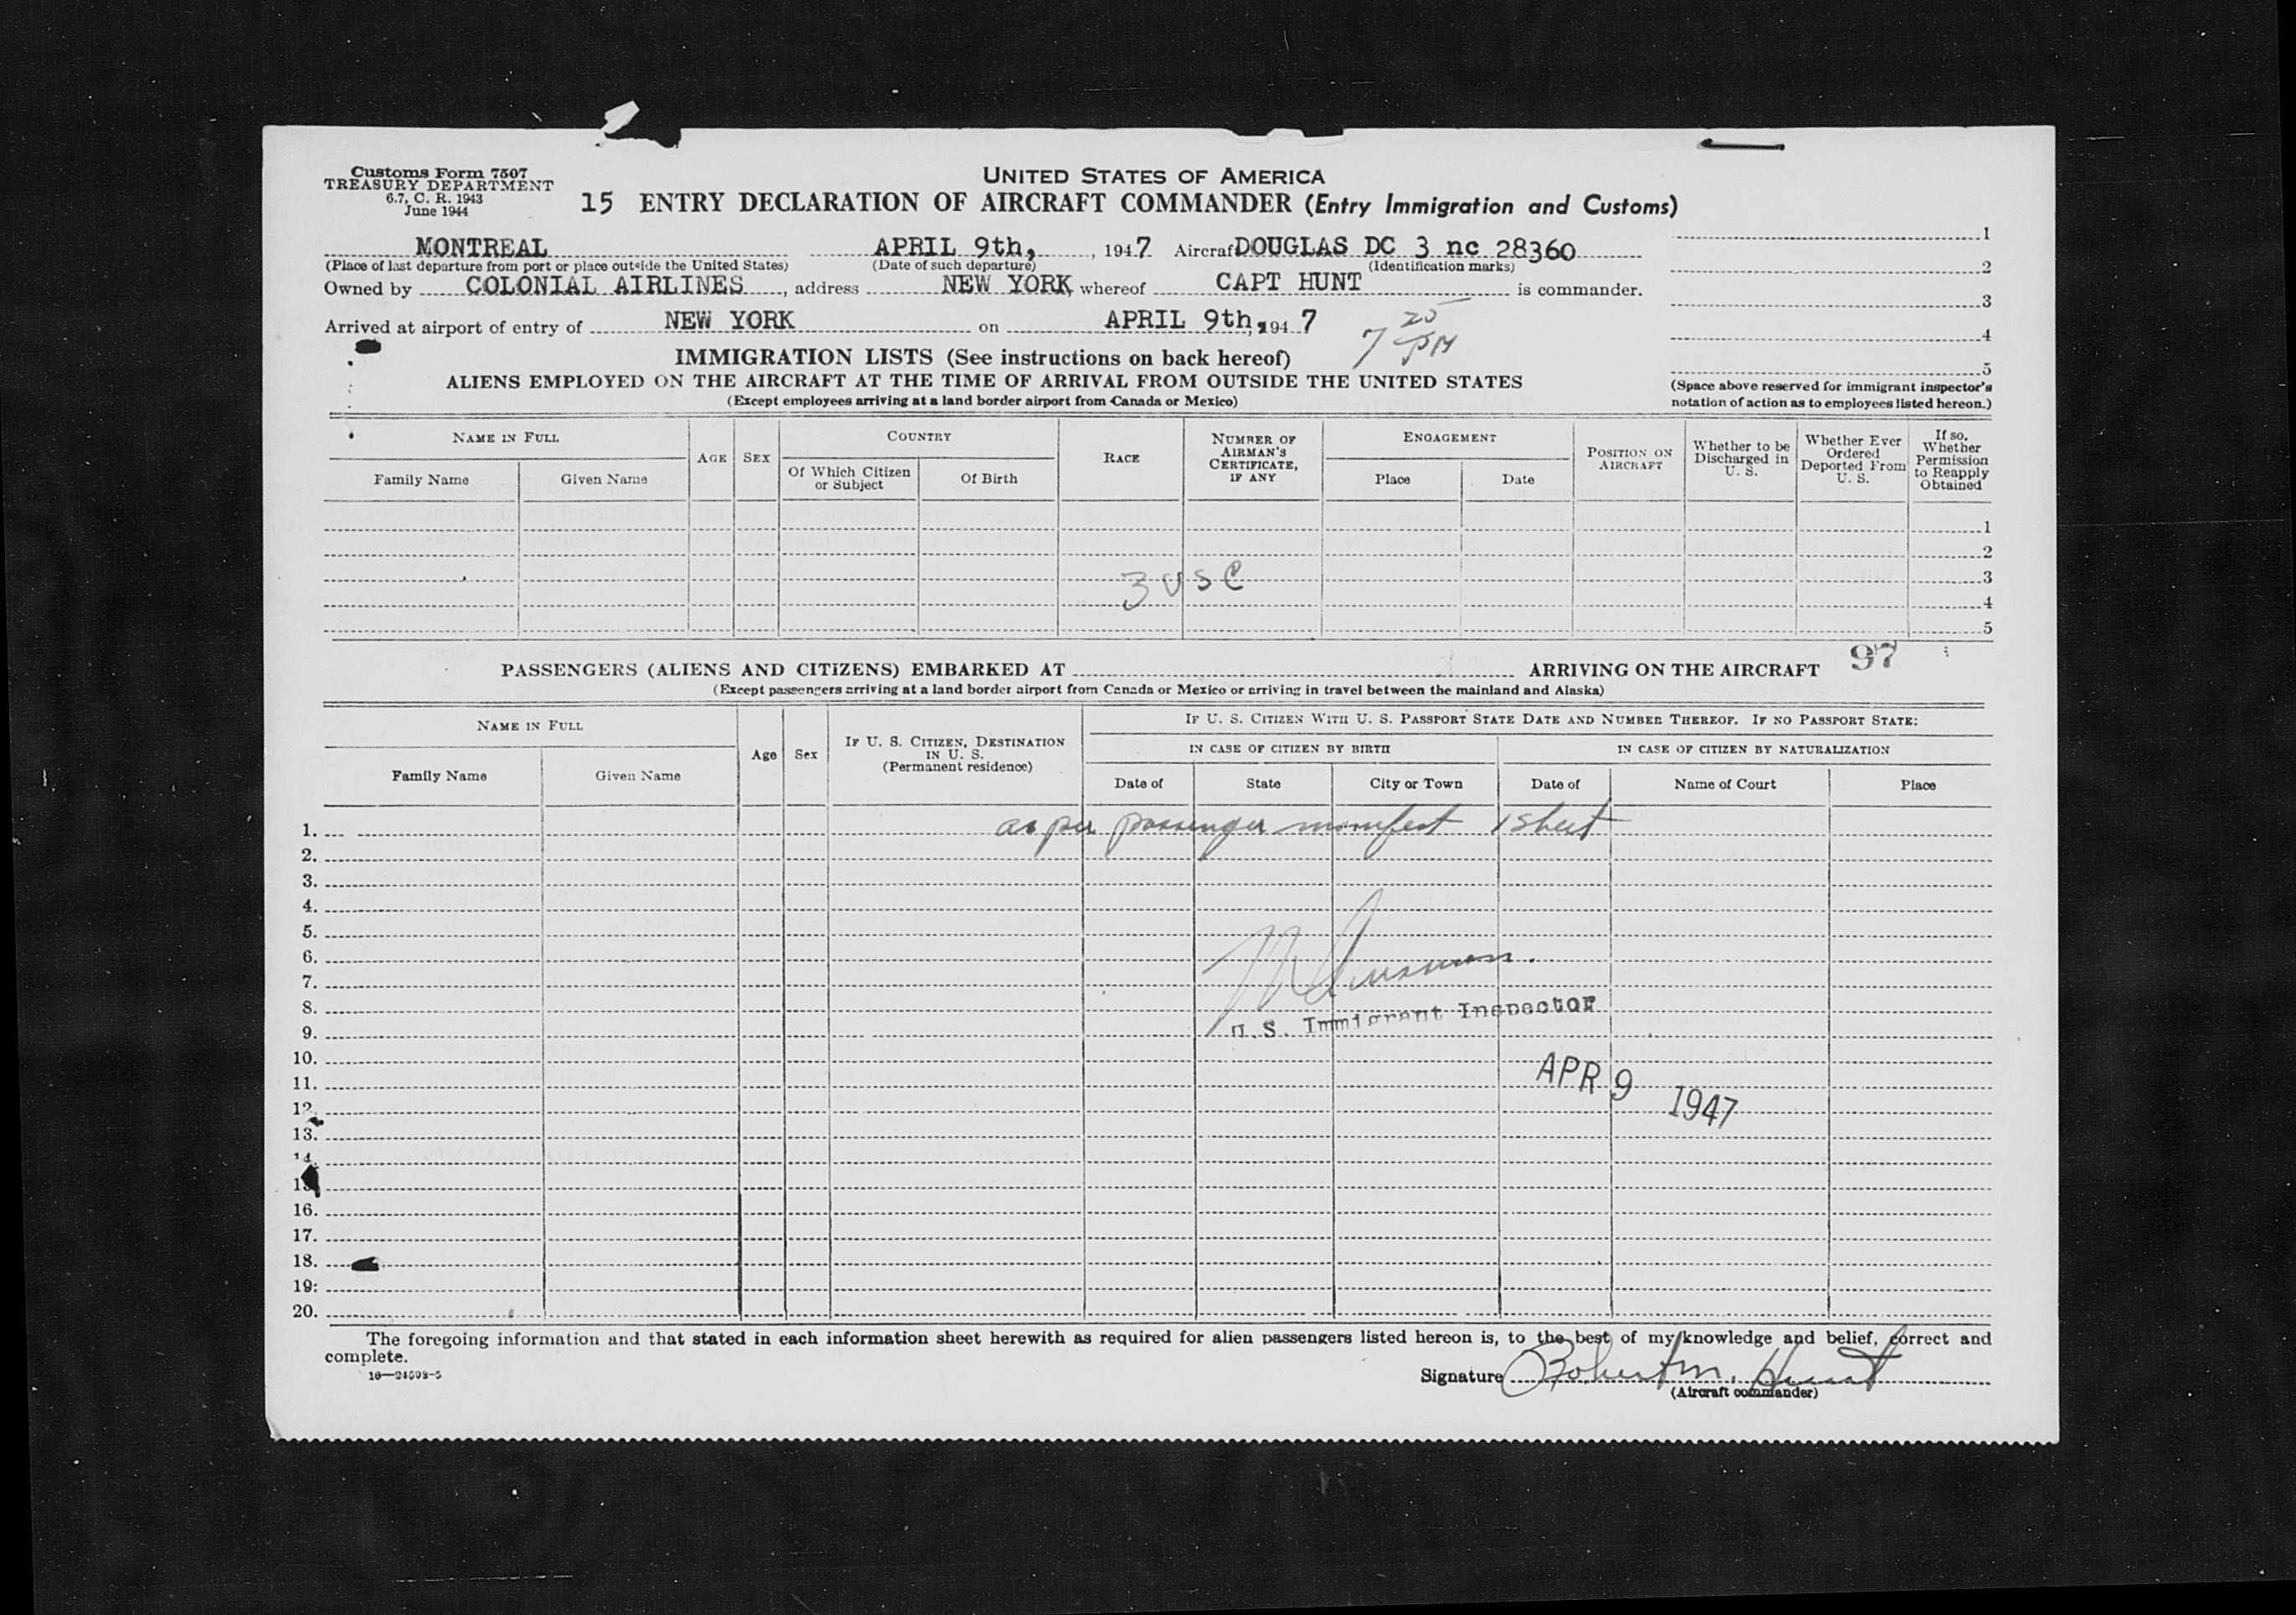 Customs Form 7507
TREASURY DEPARTMENT
6.7, C. R. 1943
June 1944
UNITED STATES OF AMERICA
15 ENTRY DECLARATION OF AIRCRAFT COMMANDER (Entry Immigration and Customs)
MONTREAL APRIL 9th, , 1947 Aircraf DOUGLAS DC 3 nc 28360
(Place of last departure from port or place outside the United States) (Date of such departure) (Identification marks)
Owned by COLONIAL AIRLINES , address NEW YORK, whereof CAPT HUNT is commander.
Arrived at airport of entry of NEW YORK on APRIL 9th, 1947
7 25 PM
1
2
3
4
5
(Space above reserved for immigrant inspector's
notation of action as to employees listed hereon.)
IMMIGRATION LISTS (See instructions on back hereof)
ALIENS EMPLOYED ON THE AIRCRAFT AT THE TIME OF ARRIVAL FROM OUTSIDE THE UNITED STATES
(Except employees arriving at a land border airport from Canada or Mexico)
NAME IN FULL
Family Name Given Name
AGE SEX
COUNTRY
Of Which Citizen or Subject Of Birth
RACE
NUMBER OF AIRMAN'S CERTIFICATE, IF ANY
ENGAGEMENT
Place Date
POSITION ON AIRCRAFT
Whether to be Discharged in U. S.
Whether Ever Ordered Deported From U. S.
If so, Whether Permission to Reapply Obtained
1
2
3 U S C 3
4
5
PASSENGERS (ALIENS AND CITIZENS) EMBARKED AT ARRIVING ON THE AIRCRAFT 97
(Except passengers arriving at a land border airport from Canada or Mexico or arriving in travel between the mainland and Alaska)
NAME IN FULL
Family Name Given Name
Age Sex
IF U. S. CITIZEN, DESTINATION IN U. S. (Permanent residence)
IF U. S. CITIZEN WITH U. S. PASSPORT STATE DATE AND NUMBER THEREOF. IF NO PASSPORT STATE:
IN CASE OF CITIZEN BY BIRTH IN CASE OF CITIZEN BY NATURALIZATION
Date of State City or Town Date of Name of Court Place
1. as per passenger manifest 1 sheet
2.
3.
4.
5.
6.
7.
8.
9. U. S. Immigrant Inspector
10.
11. APR 9 1947
12.
13.
14.
15
16.
17.
18.
19.
20.
The foregoing information and that stated in each information sheet herewith as required for alien passengers listed hereon is, to the best of my knowledge and belief, correct and
complete.
16—24503-5
Signature Robert M. Hunt
(Aircraft commander)